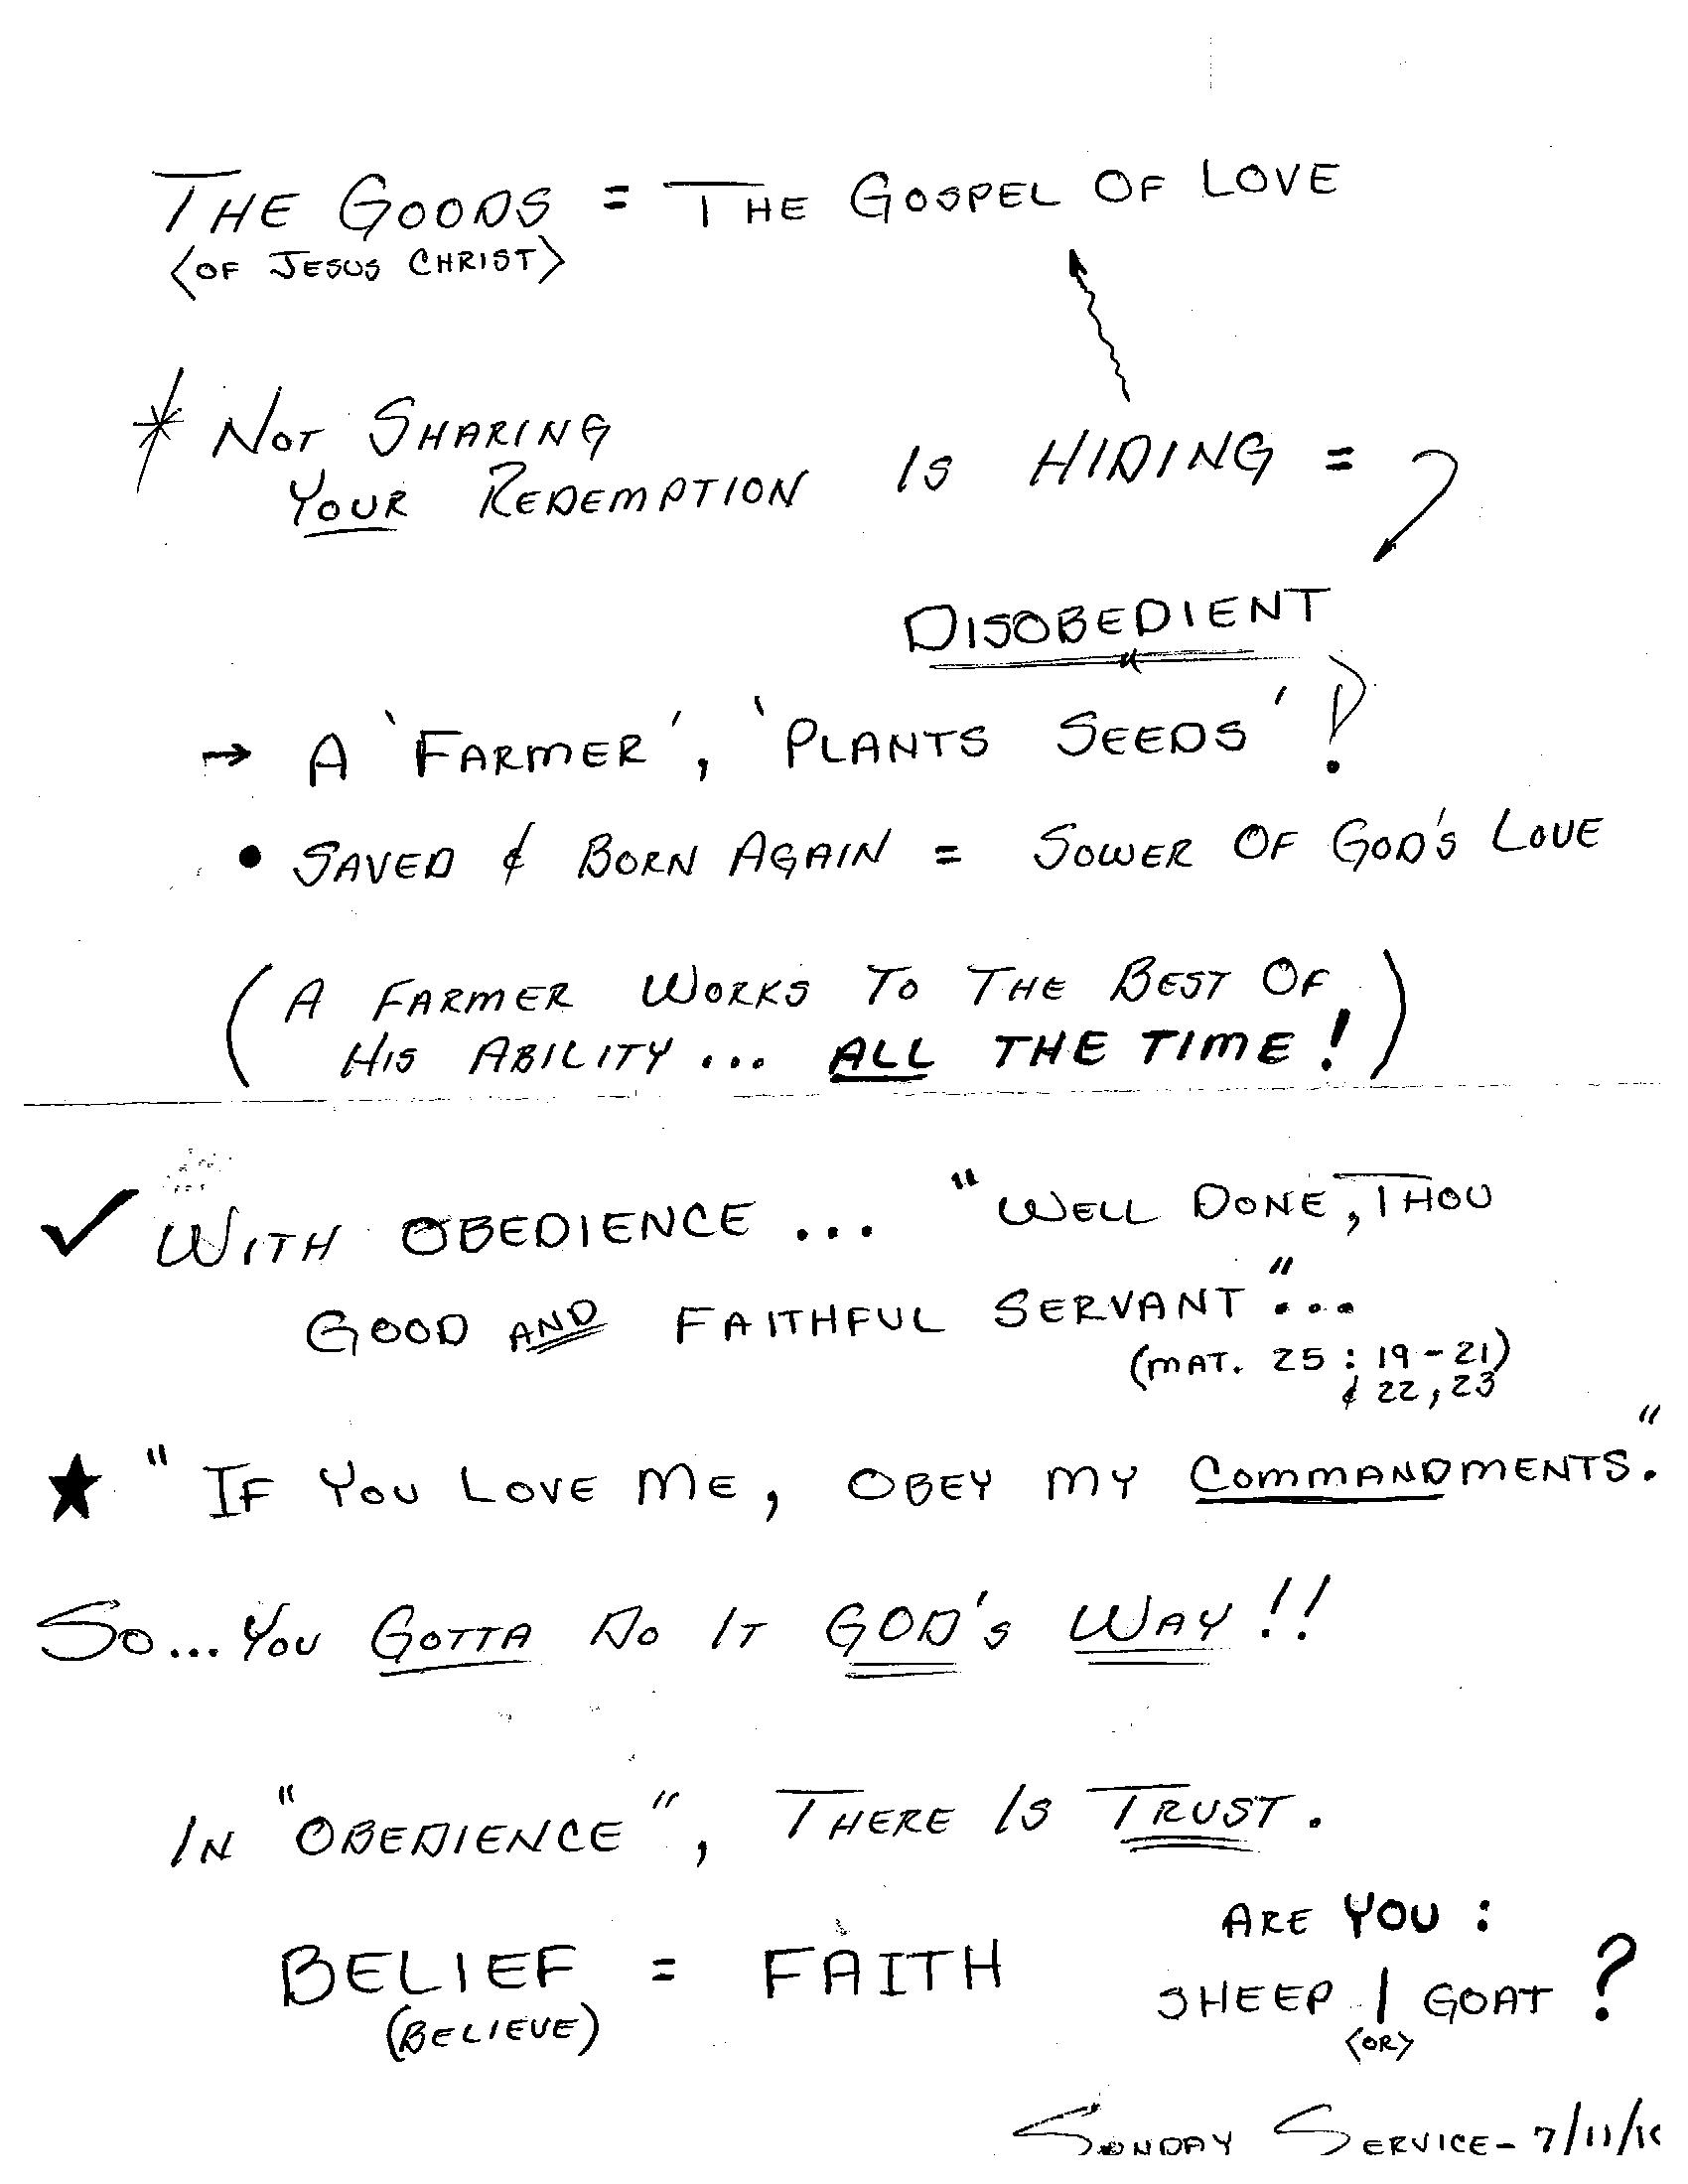 THE GOODS = THE GOSPEL OF LOVE
<OF JESUS CHRIST>
* NOT SHARING
YOUR REDEMPTION IS HIDING =
DISOBEDIENT
→ A 'FARMER', 'PLANTS SEEDS'!
• SAVED & BORN AGAIN = SOWER OF GOD'S LOVE
(A FARMER WORKS TO THE BEST OF
HIS ABILITY... ALL THE TIME!)
✓ WITH OBEDIENCE... "WELL DONE, THOU
GOOD AND FAITHFUL SERVANT"...
(MAT. 25:19-21)
& 22,23
★ "IF YOU LOVE ME, OBEY MY COMMANDMENTS."
SO... YOU GOTTA DO IT GOD'S WAY!!
IN "OBEDIENCE", THERE IS TRUST.
BELIEF = FAITH
(BELIEVE)
ARE YOU:
SHEEP / GOAT?
<OR>
SUNDAY SERVICE - 7/11/